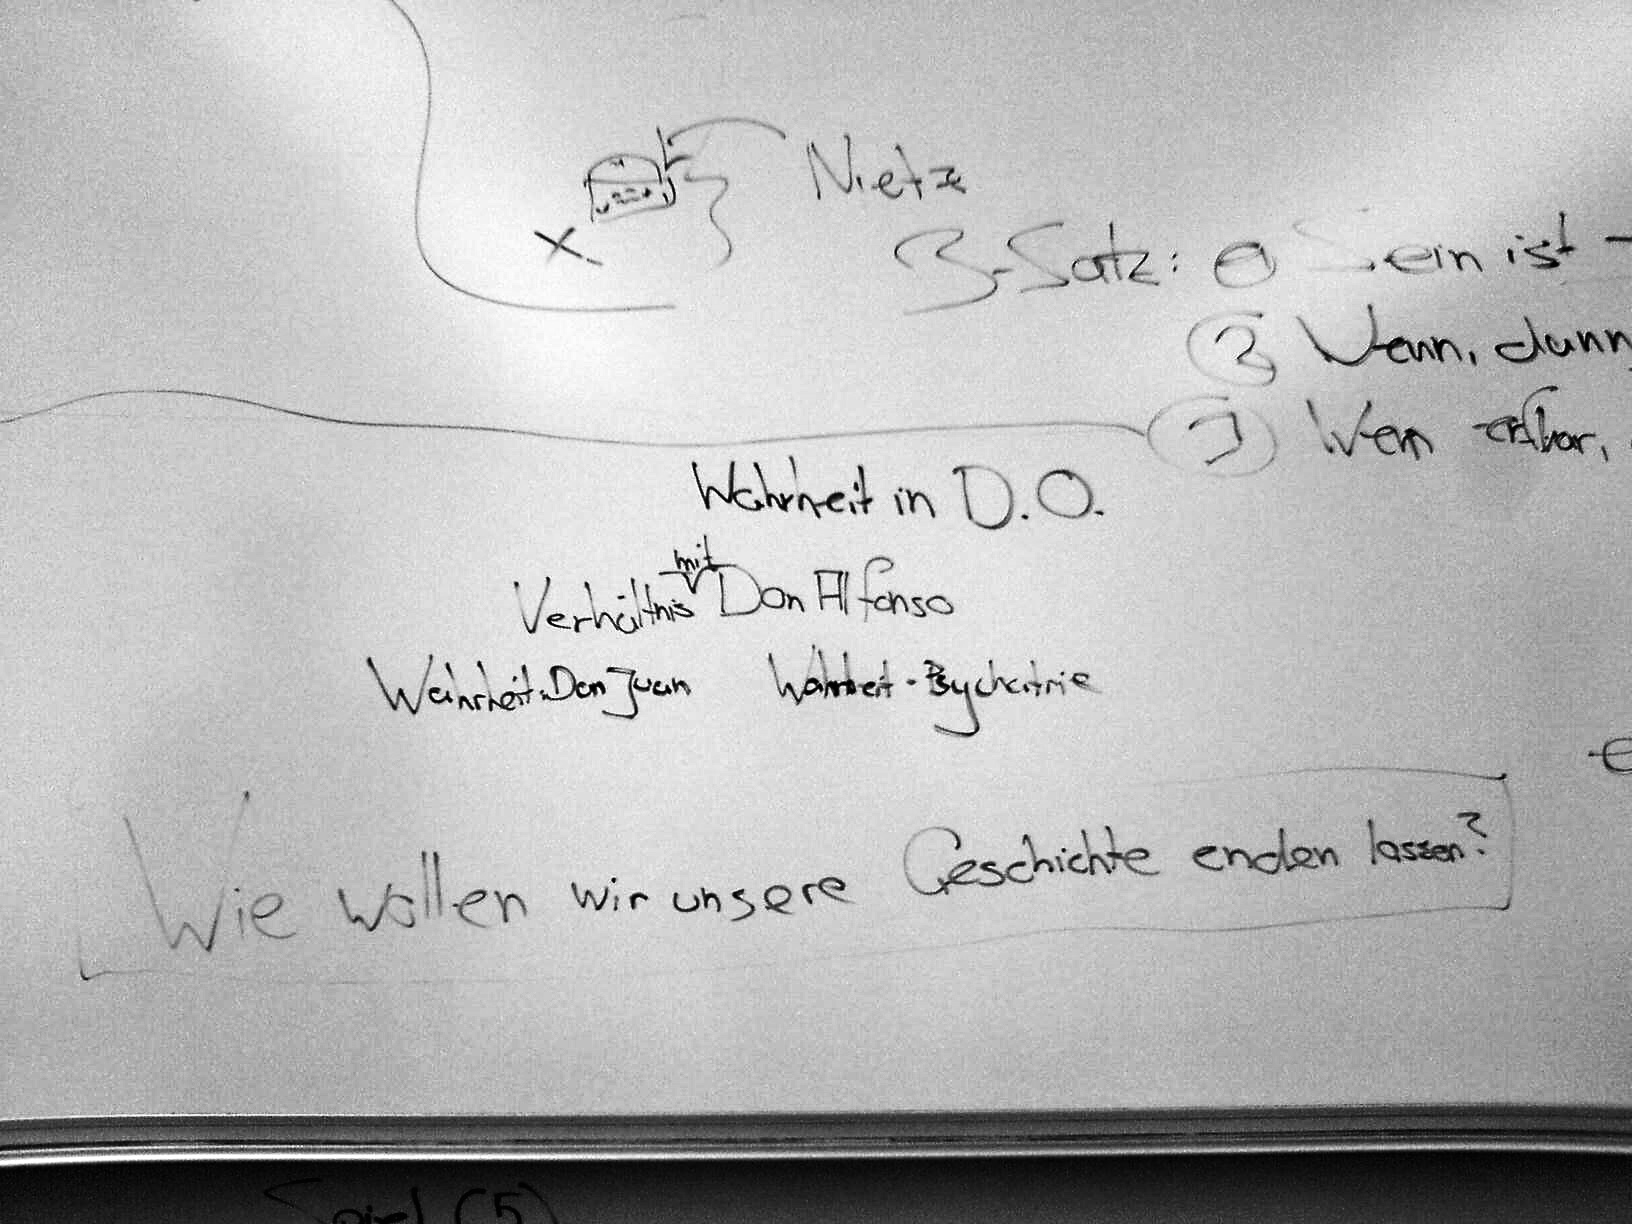 Nietz
3-Satz: ① Sein ist
② Wenn, dann
③ Wenn erfbar,
Wahrheit in D.O.
Verhältnis mit Don Alfonso
Wahrheit-Don Juan Wahrheit-Psychiatrie
Wie wollen wir unsere Geschichte enden lassen?
Spiel (5)